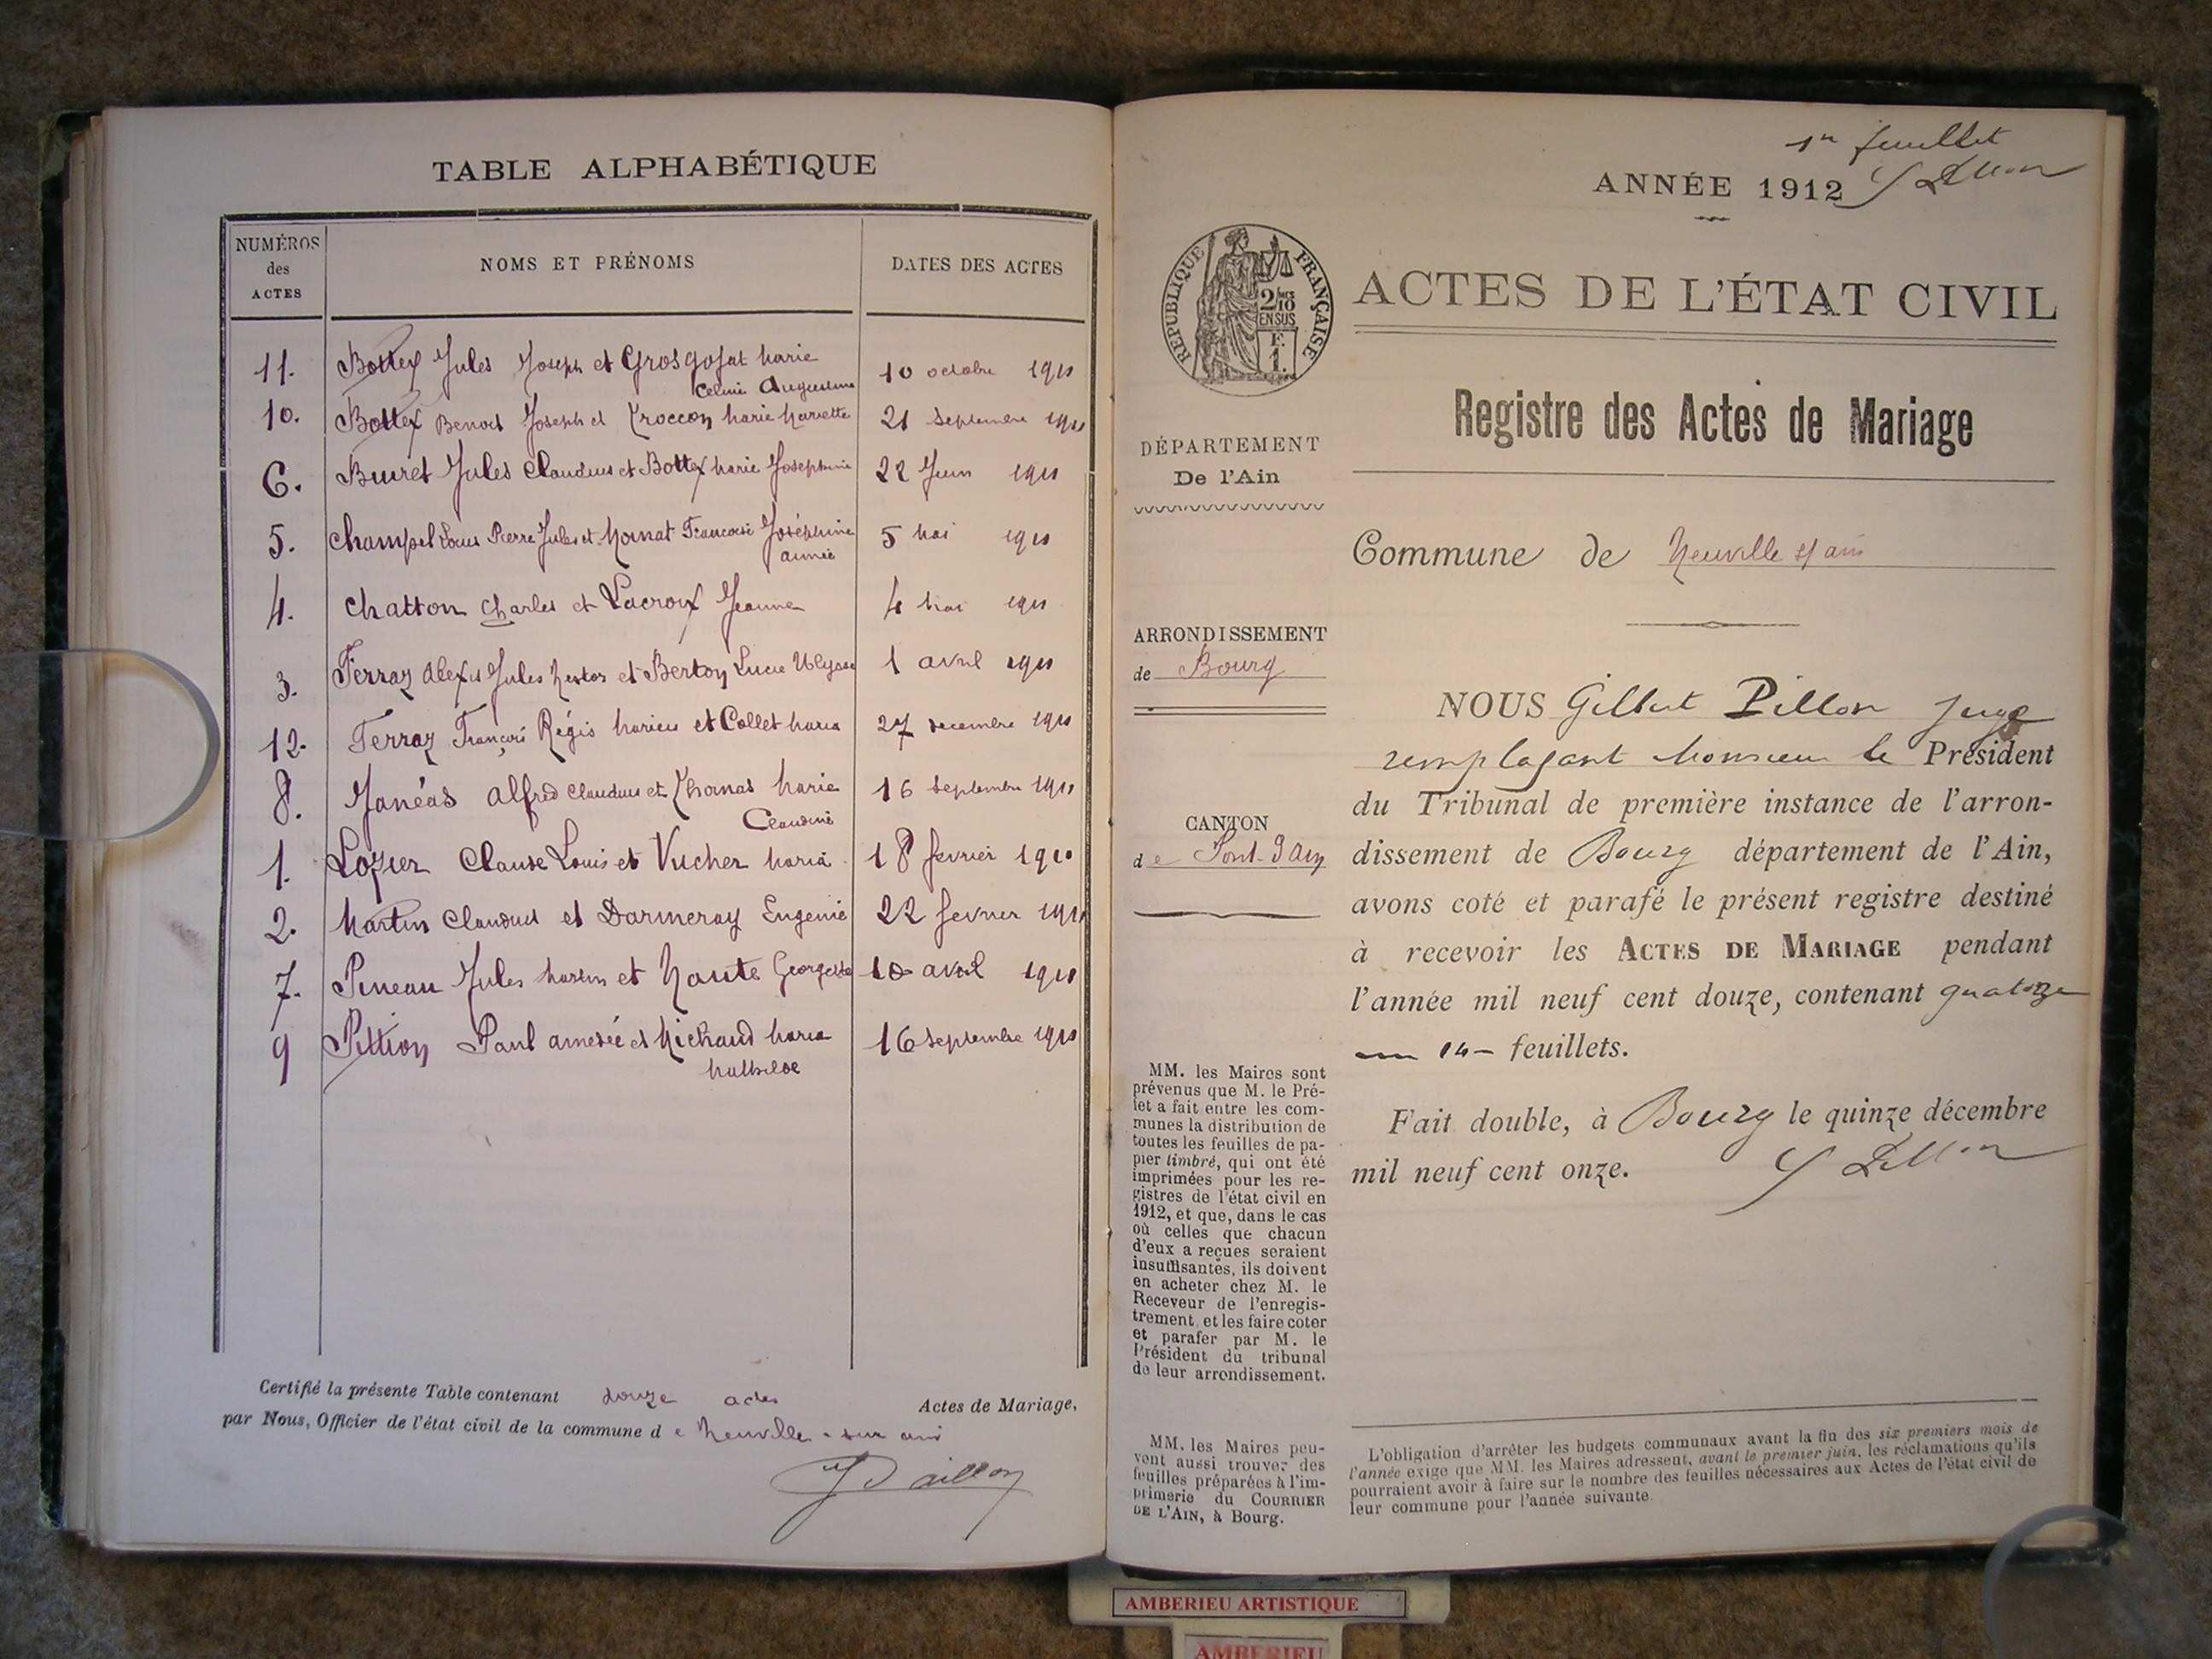 TABLE ALPHABÉTIQUE
NUMÉROS
des
ACTES
NOMS ET PRÉNOMS
DATES DES ACTES
11. Bottex Jules Joseph et Grosgojat Marie 10 octobre 1911
Celine Augustine
10. Bottex Benoit Joseph et Troccon Marie Mariette 21 septembre 1911
6. Buiret Jules Claudius et Bottex Marie Josephine 22 Juin 1911
5. Champel Louis Pierre Jules et Monnat Francoise Joséphine 5 Mai 1911
aimée
4. Chatton Charles et Lacroix Jeanne 4 Mai 1911
3. Ferraz Alexis Jules Nestor et Berton Lucie Ulysse 1 avril 1911
12. Ferraz François Régis Marieu et Collet Maria 27 decembre 1911
8. Janéas Alfred Claudius et Thomas Marie 16 septembre 1911
Claudine
1. Lozier Claude Louis et Vucher Maria 18 fevrier 1911
2. Martin Claudius et Darmeray Eugenie 22 fevrier 1911
7. Pineau Jules Martin et Naute Georgette 10 avril 1911
9 Pittion Paul amedée et Michaud Maria 16 septembre 1911
Mathilde
Certifié la présente Table contenant douze actes Actes de Mariage,
par Nous, Officier de l'état civil de la commune de Neuville-sur ain
1er feuillet
ANNÉE 1912 G Pillon
RÉPUBLIQUE FRANÇAISE
2/10
EN SUS
F.
1.
ACTES DE L'ÉTAT CIVIL
Registre des Actes de Mariage
DÉPARTEMENT
De l'Ain
Commune de Neuville s/ ain
ARRONDISSEMENT
de Bourg
CANTON
de Pont-d'Ain
NOUS Gilbert Pillon juge
remplaçant Monsieur le Président
du Tribunal de première instance de l'arron-
dissement de Bourg département de l'Ain,
avons coté et parafé le présent registre destiné
à recevoir les ACTES DE MARIAGE pendant
l'année mil neuf cent douze, contenant quatorze
14 feuillets.
Fait double, à Bourg le quinze décembre
mil neuf cent onze. G Pillon
MM. les Maires sont
prévenus que M. le Pré-
fet a fait entre les com-
munes la distribution de
toutes les feuilles de pa-
pier timbré, qui ont été
imprimées pour les re-
gistres de l'état civil en
1912, et que, dans le cas
où celles que chacun
d'eux a reçues seraient
insuffisantes, ils doivent
en acheter chez M. le
Receveur de l'enregis-
trement, et les faire coter
et parafer par M. le
Président du tribunal
de leur arrondissement.
MM. les Maires peu-
vent aussi trouver des
feuilles préparées à l'im-
primerie du COURRIER
DE L'AIN, à Bourg.
L'obligation d'arrêter les budgets communaux avant la fin des six premiers mois de
l'année exige que MM. les Maires adressent, avant le premier juin, les réclamations qu'ils
pourraient avoir à faire sur le nombre des feuilles nécessaires aux Actes de l'état civil de
leur commune pour l'année suivante.
AMBERIEU ARTISTIQUE
AMBERIEU